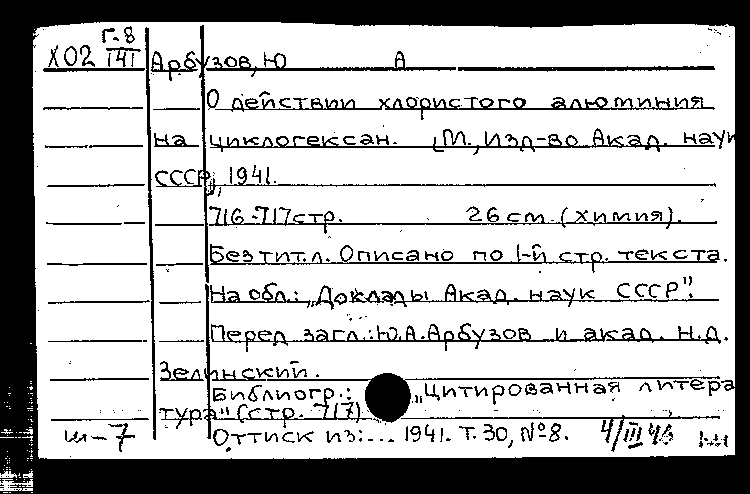 Х02 Г.8/141 Арбузов, Ю А
О действии хлористого алюминия
на циклогексан. [М., Изд-во Акад. наук
СССР], 1941.
716-717 стр. 26 см (химия).
Без тит.л. Описано по 1-й стр. текста.
На обл.: „Доклады Акад. наук СССР".
Перед загл.: Ю.А.Арбузов и акад. Н.Д.
Зелинский.
Библиогр.: „Цитированная литера
тура" (стр. 717)
ш-7 Оттиск из:... 1941. Т. 30, №8. 4/III 46